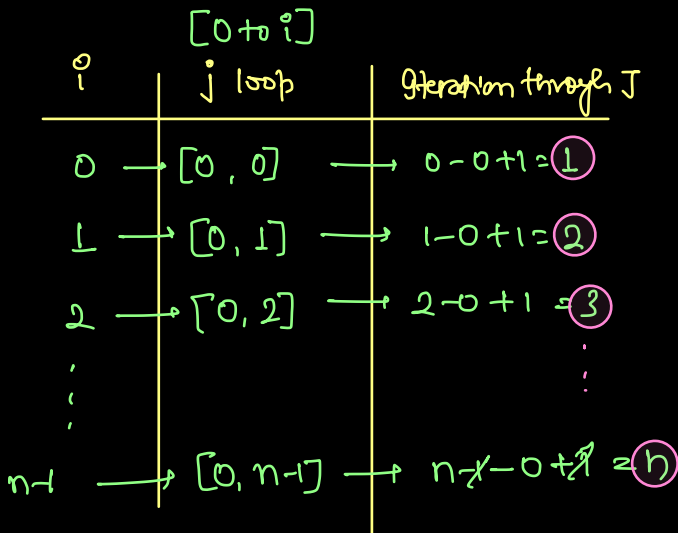 [0 to i]
i j loop Iteration through J
0 → [0, 0] → 0-0+1=1
1 → [0, 1] → 1-0+1=2
2 → [0, 2] → 2-0+1=3
n-1 → [0, n-1] → n-1-0+1=n